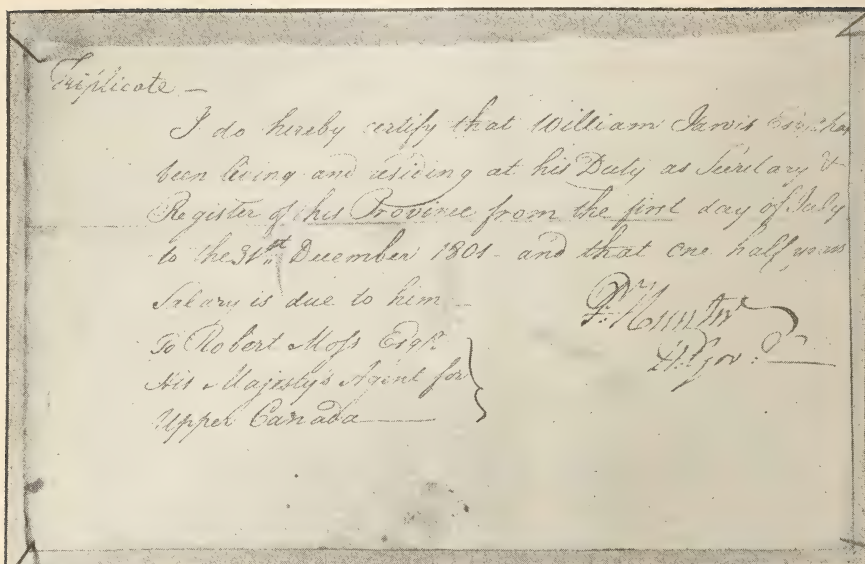 Triplicate —
I do hereby certify that William Jarvis Esqr. has
been living and residing at his Duty as Secretary &
Register of this Province from the first day of July
to the 31st December 1801 - and that one half years
Salary is due to him —
P. Hunter
Lt. Gov.
To Robert Moss Esqr.
His Majesty's Agent for
Upper Canada —